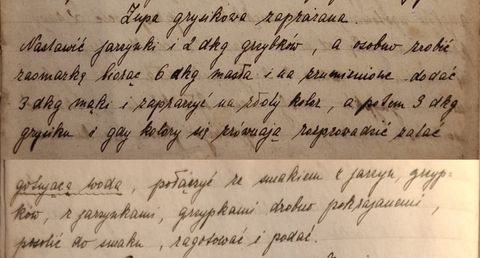 Zupa grysikowa zaprażana.
Nastawić jarzynki i 2 dkg grzybków, a osobno zrobić
zasmażkę biorąc 6 dkg masła i na zrumienione dodać
3 dkg mąki i zaprażyć na złoty kolor, a potem 3 dkg
grysiku i gdy kolory się zrównają rozprowadzić zalać
gotującą wodą, połączyć ze smakiem z jarzyn, grzyp-
ków, z jarzynkami, grzypkami drobno pokrajanemi,
posolić do smaku, zagotować i podać.